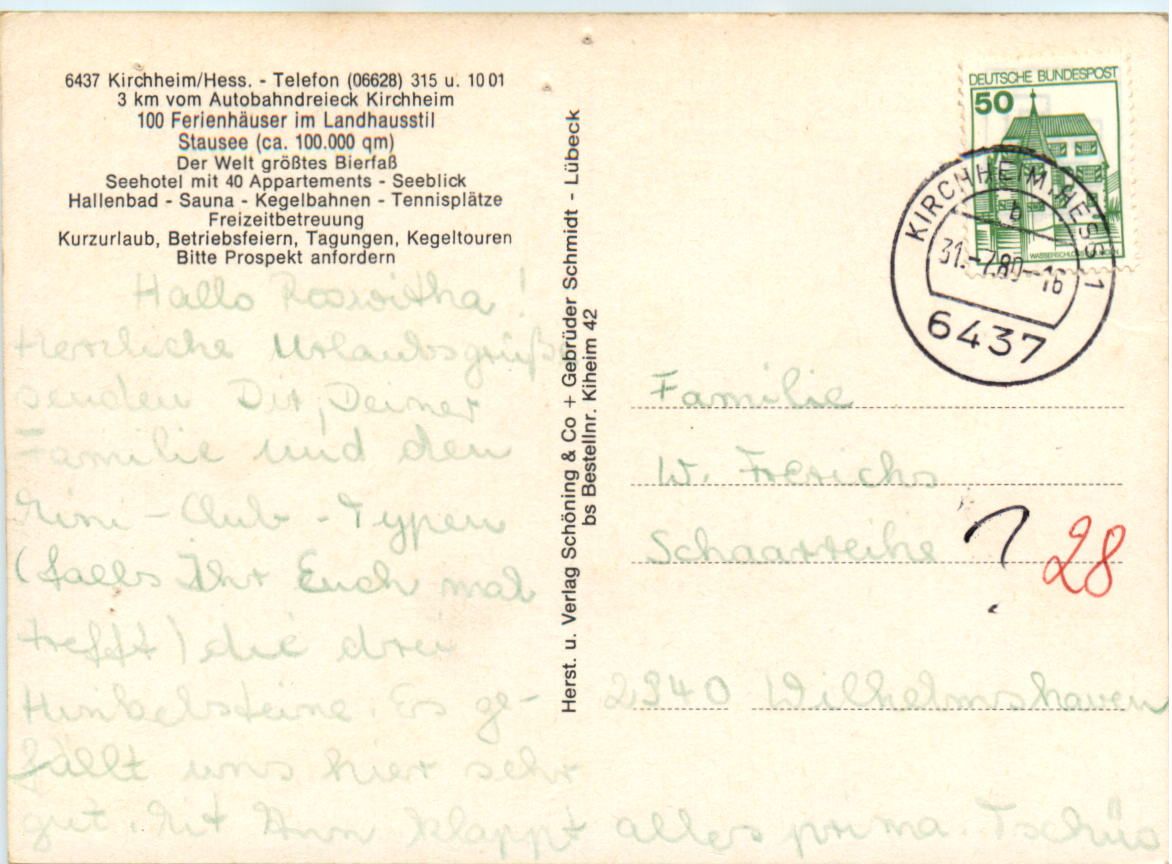 6437 Kirchheim/Hess. - Telefon (06628) 315 u. 10 01
3 km vom Autobahndreieck Kirchheim
100 Ferienhäuser im Landhausstil
Stausee (ca. 100.000 qm)
Der Welt größtes Bierfaß
Seehotel mit 40 Appartements - Seeblick
Hallenbad - Sauna - Kegelbahnen - Tennisplätze
Freizeitbetreuung
Kurzurlaub, Betriebsfeiern, Tagungen, Kegeltouren
Bitte Prospekt anfordern
Hallo Roswitha!
Herzliche Urlaubsgrüße
senden Dir, Deiner
Familie und den
Mini-Club-Typen
(falls Ihr Euch mal
trefft) die drei
Hinkelsteine. Es ge-
fällt uns hier sehr
gut. Mit klappt alles prima. Tschüs
Herst. u. Verlag Schöning & Co + Gebrüder Schmidt - Lübeck
bs Bestellnr. Kiheim 42
DEUTSCHE BUNDESPOST
50
KIRCHHEIM, HESS 1
b
31.-7.80-16
6437
Familie
W. Frerichs
Schaarreihe ? 28
2940 Wilhelmshaven